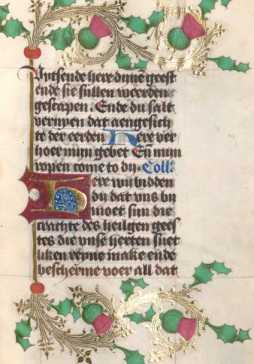 sende here dine geest
ende sie sullen weerden
gescapen. Ende du salt
vernyen dat aengesich
te der eerden Here ver
hoer mijn gebet En mijn
ropen come to dy. Coll
ere wi bidden
du dat ons by
moet sijn die
des heiligen gees
tes die onse herten
reyne make ende
bescherme voer all dat